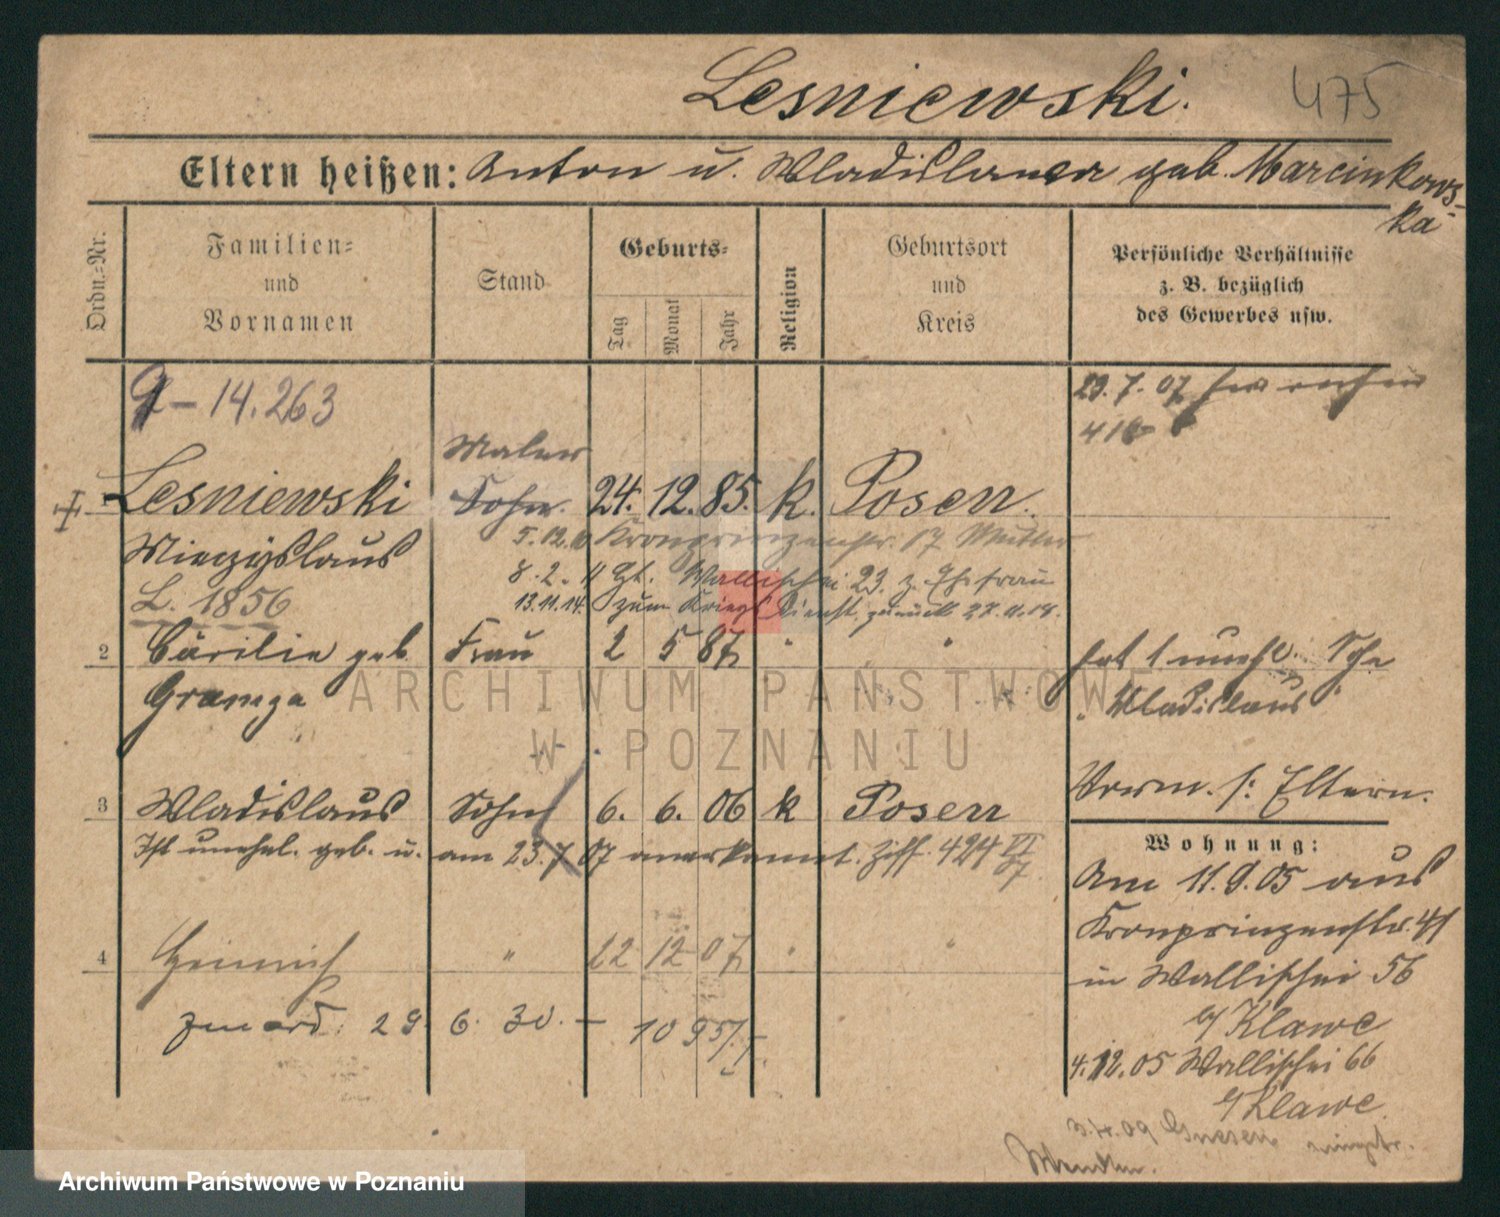 Lesniewski.
475
Eltern heißen: Anton u. Wladislawa geb. Marcinkows-
ka
Ordn.-Nr.
Familien-
und
Vornamen
Stand
Geburts-
Tag
Monat
Jahr
Religion
Geburtsort
und
Kreis
Persönliche Verhältnisse
z. B. bezüglich
des Gewerbes usw.
14.263
23.7.07
Maler
1 Lesniewski Sohn. 24. 12. 85. k. Posen.
Mieczyslaus
5.12.10 Kronprinzenstr. 17 Mutter
8.2.11 Wallischei 23 z. Ehefrau
L. 1856
13.11.14 zum Kriegsdienst zurück 27.11.18.
2 Cäcilie geb. Frau 2 5 87 " "
Gramza
hat 1 unehl.
"Wladislaus"
ARCHIWUM PAŃSTWOWE
W POZNANIU
Vorm. s: Eltern.
3 Wladislaus Sohn 6. 6. 06 k Posen
Ist unehel. geb. u. am 23.7.07 anerkannt. Ziff. 424 VI/07
Wohnung:
Am 11.9.05 aus
Kronprinzenstr. 41
in Wallischei 56
b/ Klawe
4.12.05 Wallischei 66
b/ Klawe
4 Heinrich " 22 12 07 " "
29 6. 30. 1095/
3.4.09 Gnesen
Archiwum Państwowe w Poznaniu